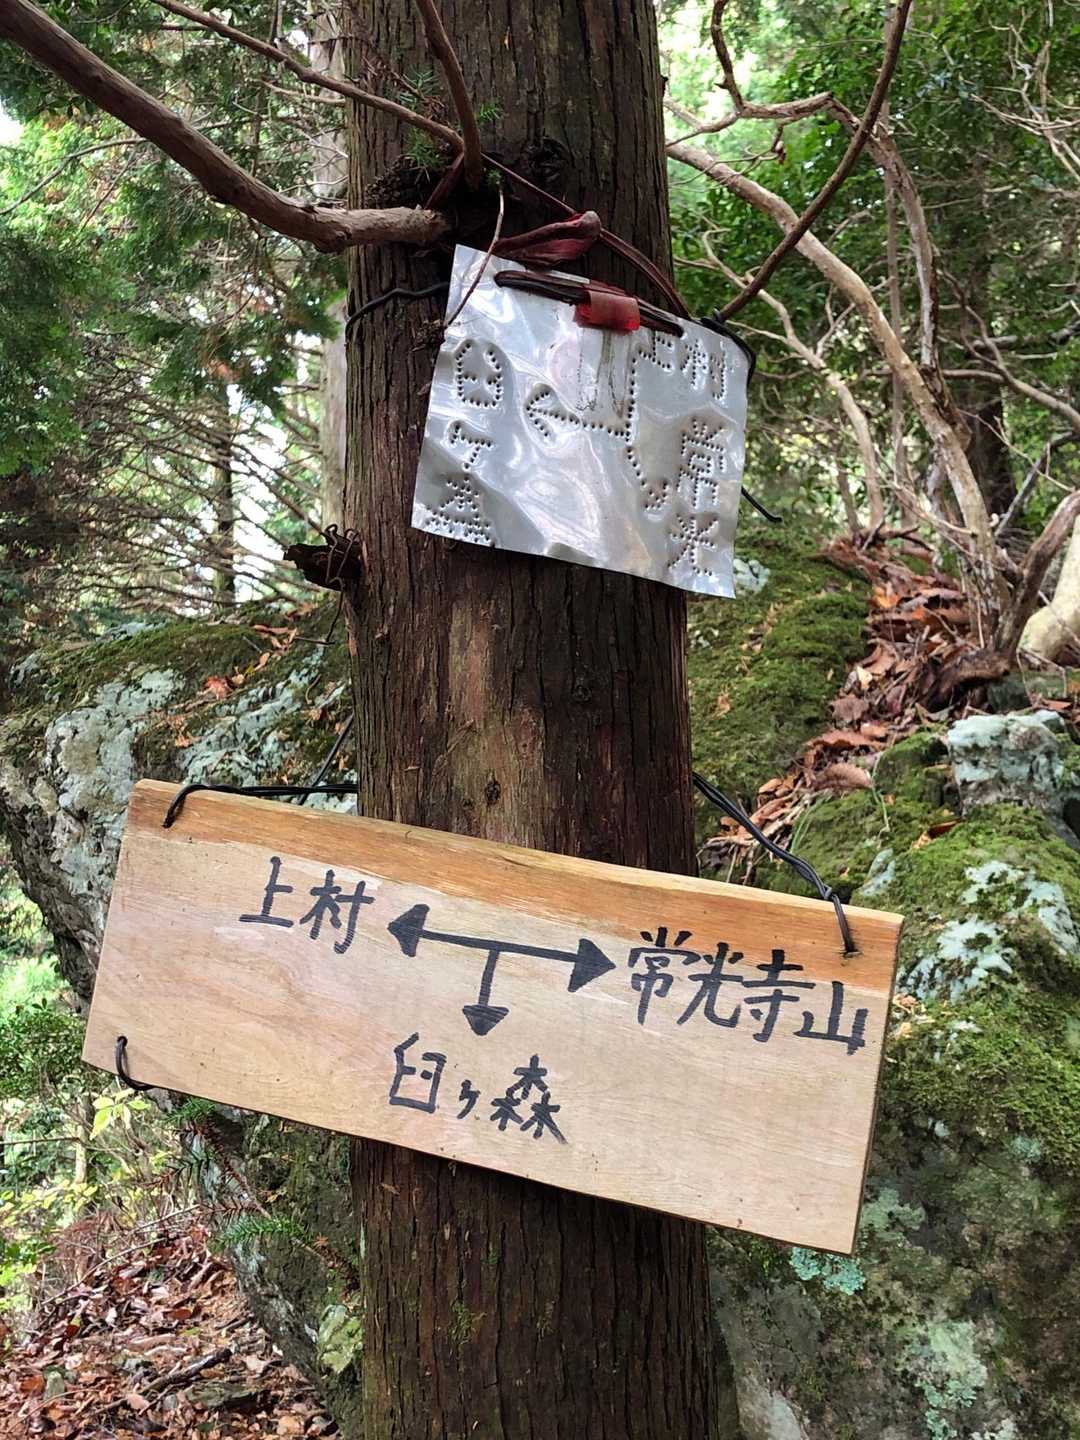 上村
常光
臼ケ森
上村
常光寺山
臼ヶ森